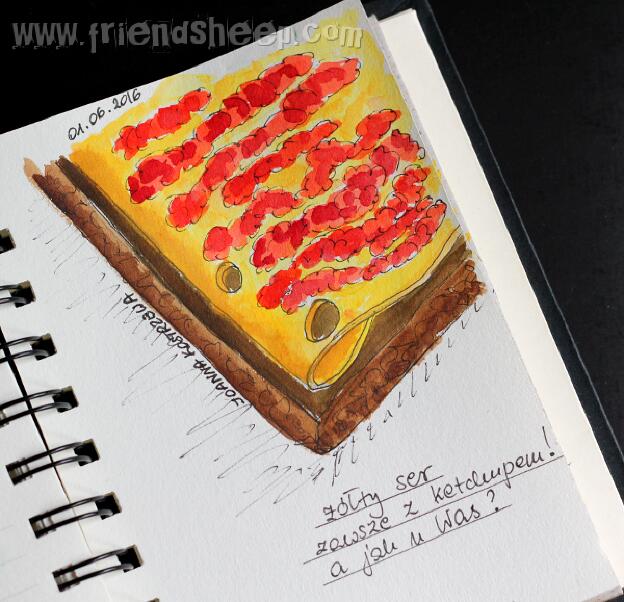 www.friendsheep.com
01.06.2016
JOANNA KOSTRZEWA
żółty ser
zawsze z ketchupem!
a jak u Was?